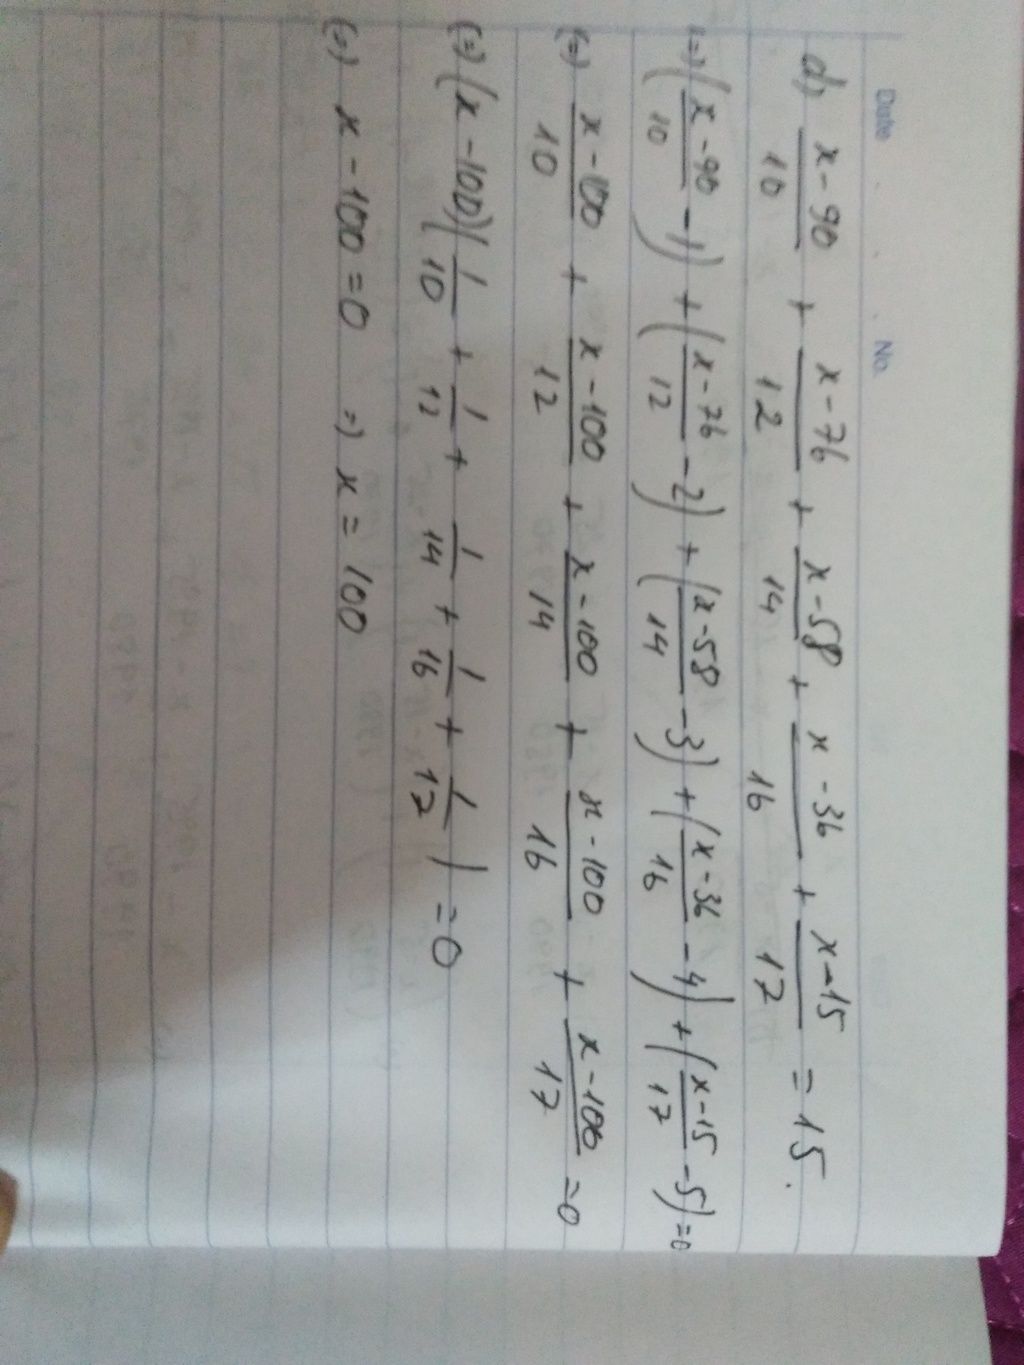 Date No.
d) x-90/10 + x-76/12 + x-58/14 + x-36/16 + x-15/17 = 15.
(=) (x-90/10 - 1) + (x-76/12 - 2) + (x-58/14 - 3) + (x-36/16 - 4) + (x-15/17 - 5) = 0
(=) x-100/10 + x-100/12 + x-100/14 + x-100/16 + x-100/17 = 0
(=) (x-100)(1/10 + 1/12 + 1/14 + 1/16 + 1/17) = 0
(=) x-100 = 0 => x = 100